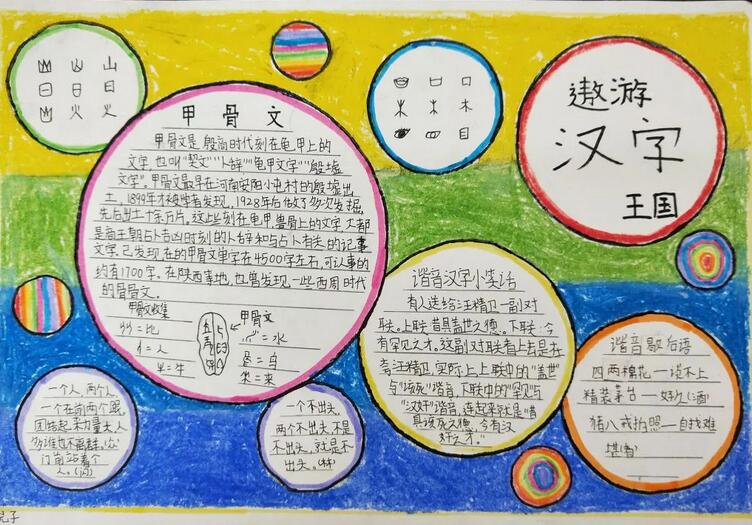 遨游
汉字
王国
山
日
火
口
木
目
甲骨文
甲骨文是殷商时代刻在龟甲上的
文字,也叫"契文""卜辞""龟甲文字""殷墟
文字"。甲骨文最早在河南安阳小屯村的殷墟出
土,1899年才被学者发现,1928年后做了多次发掘,
先后出土十余万片。这些刻在龟甲兽骨上的文字大都
是商王朝占卜吉凶时刻的卜辞和与占卜有关的记事
文字,已发现在的甲骨文单字在4500字左右,可认事的
约有1700字。在陕西等地,也曾发现一些西周时代
的骨骨文。
甲骨文收集
=比
=人
=牛
甲骨文
=水
=舟
=来
谐音汉字小笑话
有人送给汪精卫一副对
联。上联:昔具盖世之德。下联:今
有罕见之才。这副对联看上去是在
夸汪精卫,实际上,上联中的"盖世"
与"该死"谐音,下联中的"罕见"与
"汉奸"谐音,连起来就是"昔
具该死之德,今有汉
奸之才。"
谐音歇后语
四两棉花——谈不上
精装茅台——好久(酒)
猪八戒拍照——自找难
堪(看)
一个人,两个人,
一个在前两个跟,
团结起来力量大,人
多谁也不离群。(众)
门前站着个
人。(闪)
一个不出头,
两个不出头,不是
不出头,就是不
出头。(林)